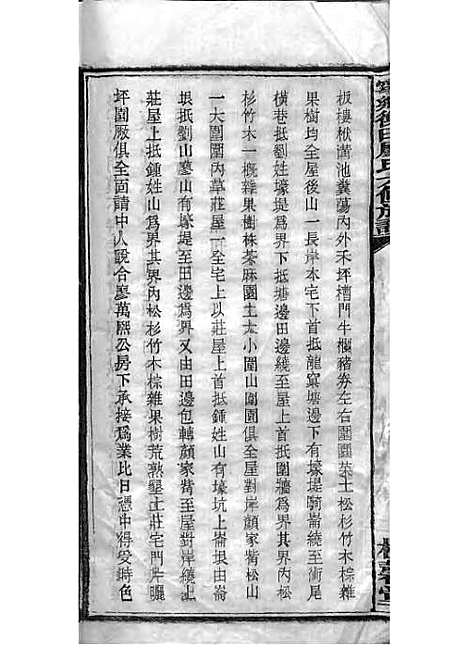 板樓楸滿池糞蕩內外禾坪槽門牛欄豬券左右園圍菜土松杉竹木棕雜
果樹均全屋後山一長岸本宅下首抵龍窩塘邊下有壕堤騎崙繞至衝尾
橫巷抵劉姓壕堤為界下抵塘邊田邊繞至屋上首抵圍牆為界其界內松
杉竹木一概雜果樹株茶麻園土大小圍山圍園俱全屋對岸顏家嘴松山
一大圍圍內草莊屋一全宅上以莊屋上首抵鍾姓山有壕坑上崙埌由崙
埌抵劉山蓼山有壕堤至田邊為界又由田邊包轉顏家嘴至屋對岸繞上
莊屋上抵鍾姓山為界其界內松杉竹木棕雜果樹荒熟墾土莊宅門片曬
坪園廄俱全面請中人說合廖萬熙公房下承接為業比日憑中得受時色